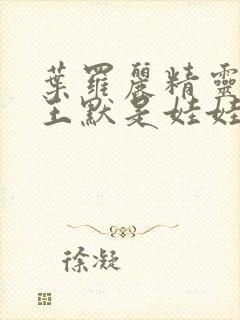 葉羅麗精靈
王默是娃娃
徐凝